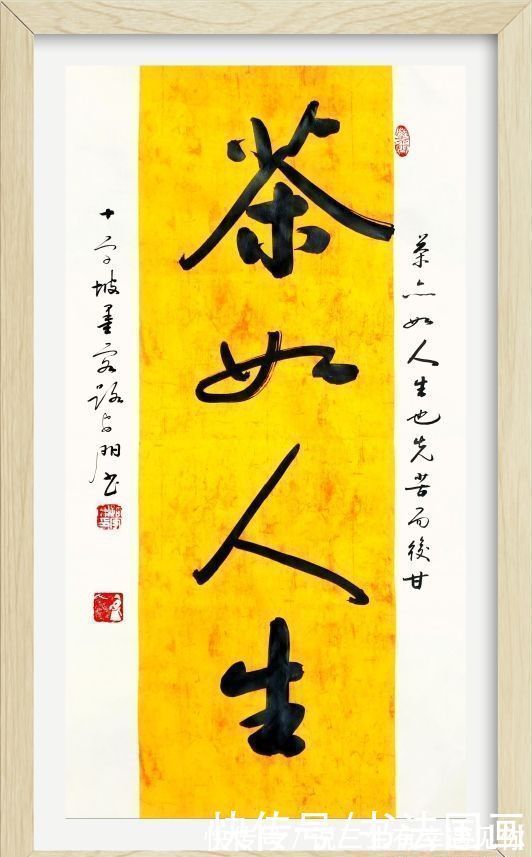 茶亦如人生也先苦而後甘
茶如人生
十字坡墨客路朋书
快传号/书法国画